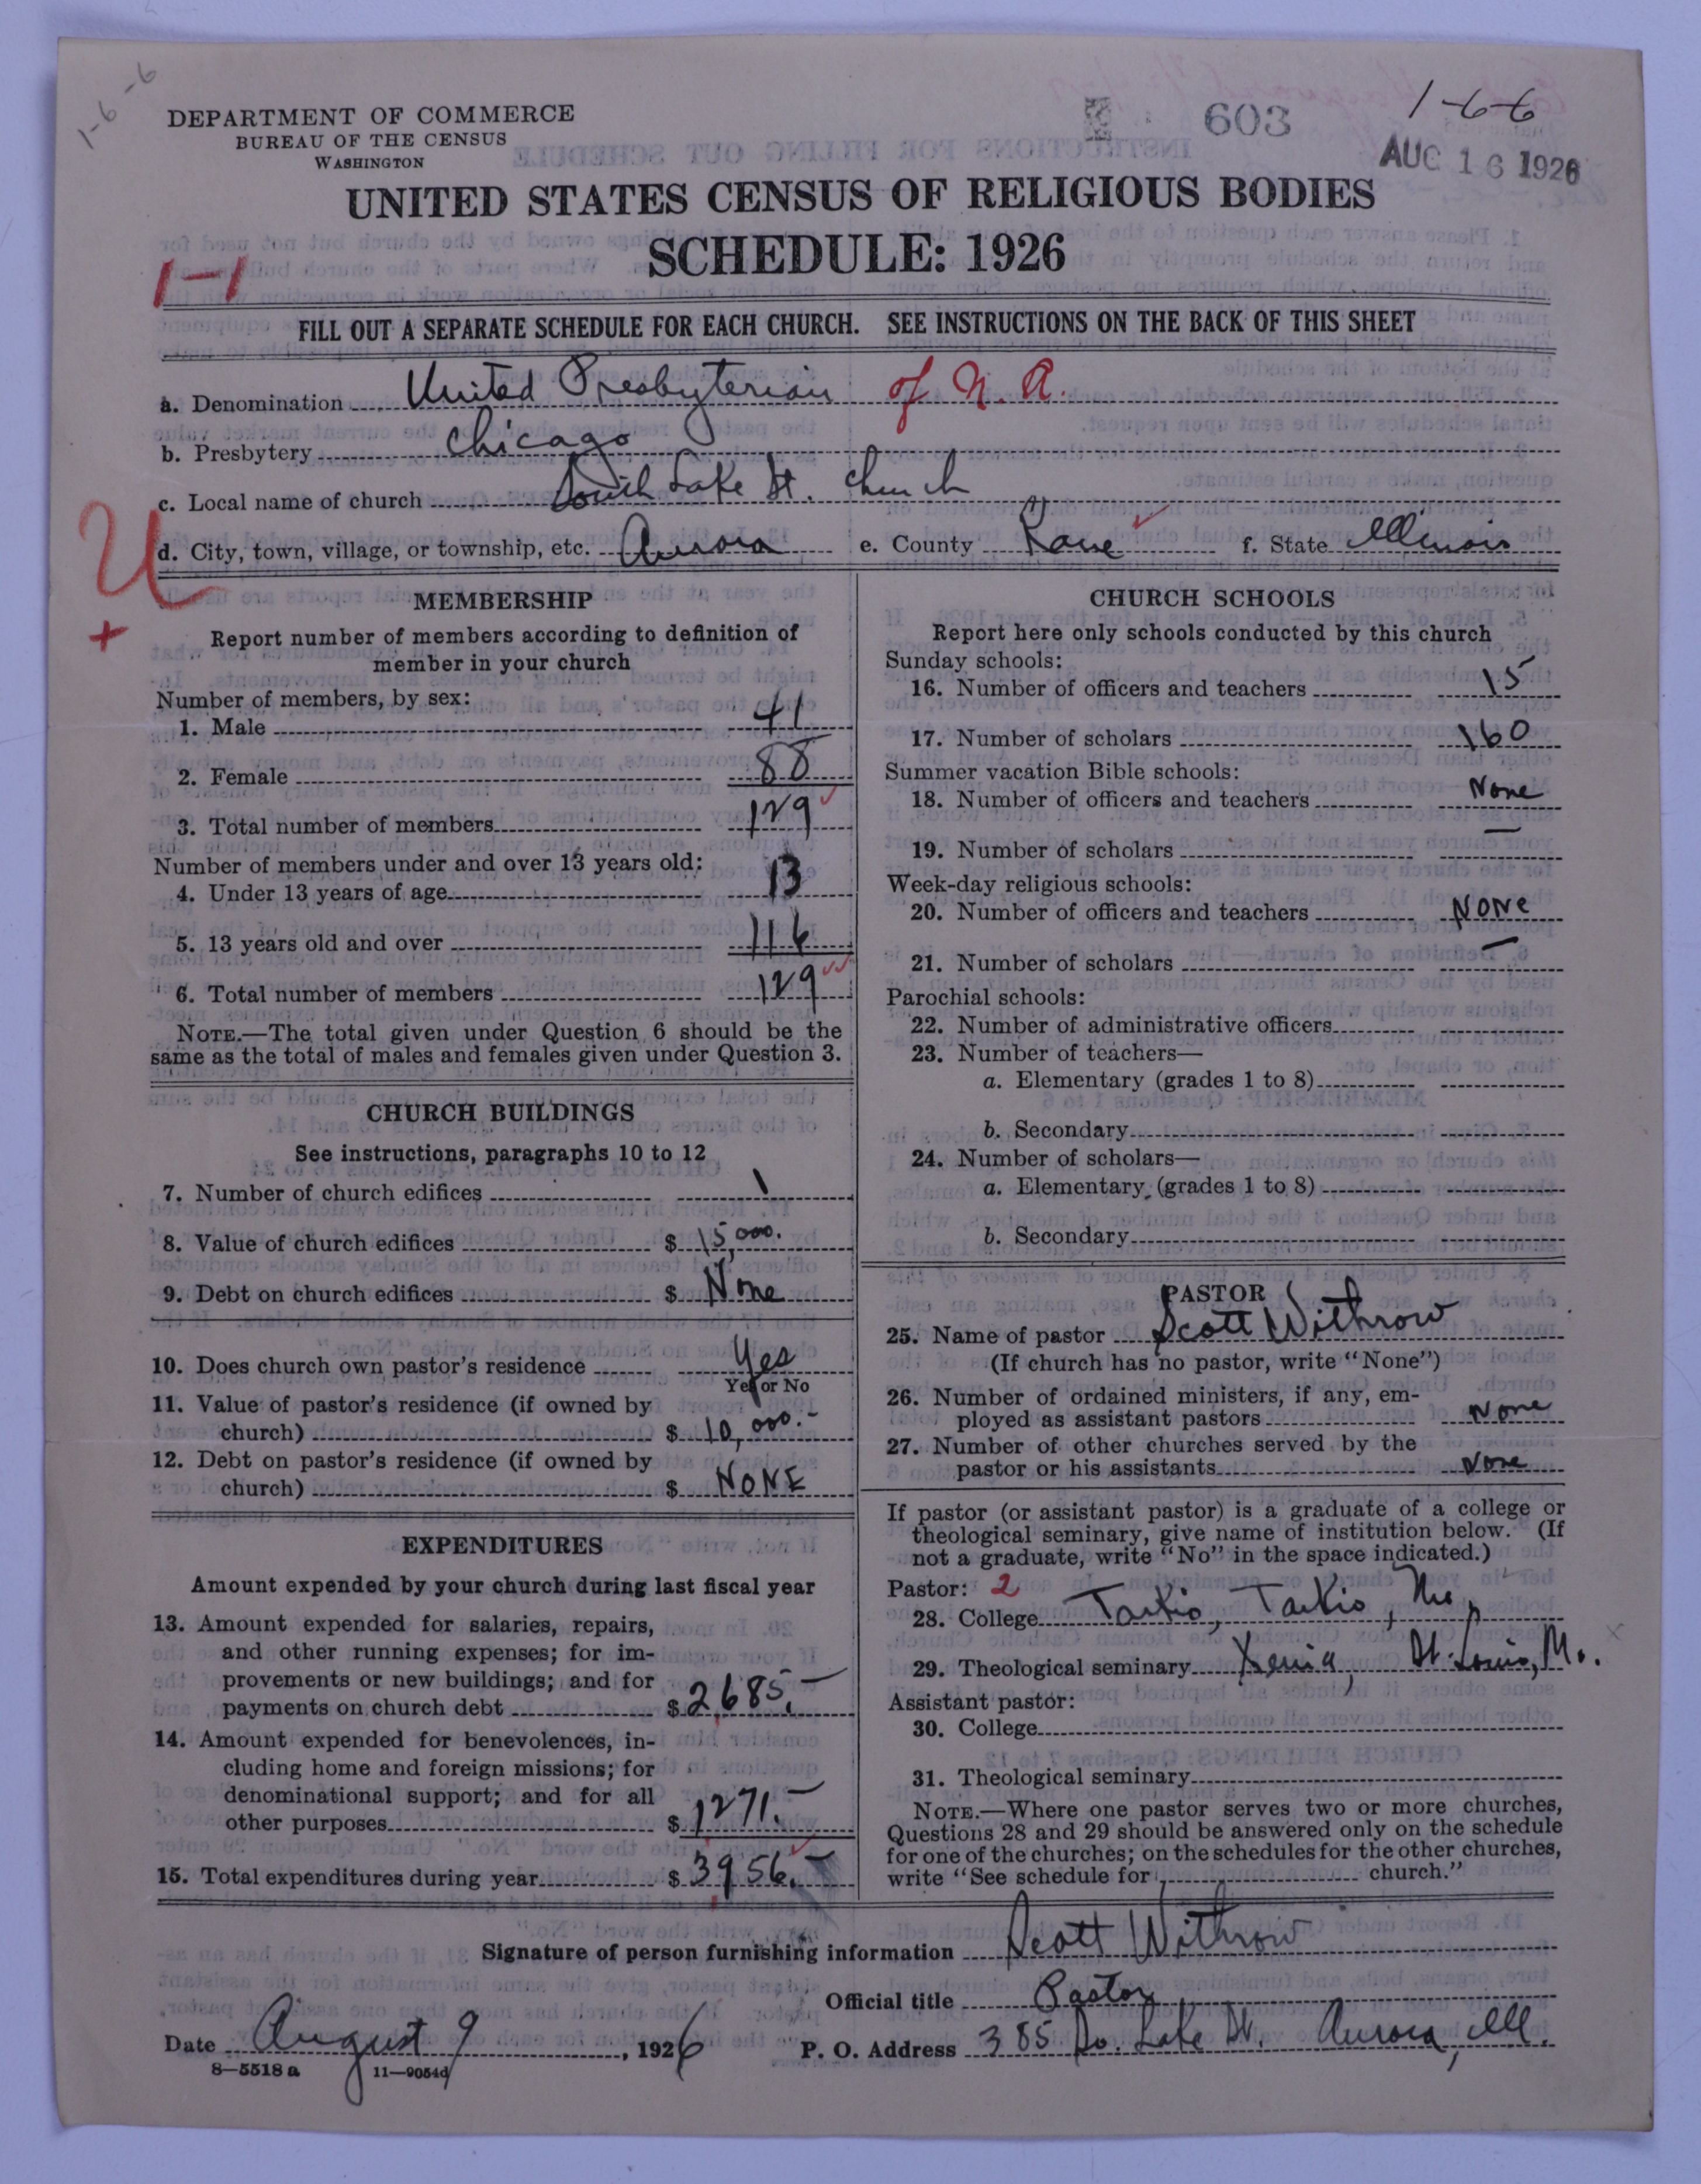 1-6-6
DEPARTMENT OF COMMERCE
BUREAU OF THE CENSUS
WASHINGTON
603
1-6-6
AUG 16 1926
UNITED STATES CENSUS OF RELIGIOUS BODIES
SCHEDULE: 1926
1-1
FILL OUT A SEPARATE SCHEDULE FOR EACH CHURCH. SEE INSTRUCTIONS ON THE BACK OF THIS SHEET
a. Denomination United Presbyterian of N. A.
b. Presbytery Chicago
c. Local name of church South Lake St. Church
d. City, town, village, or township, etc. Aurora e. County Kane f. State Illinois
U
+
MEMBERSHIP
Report number of members according to definition of
member in your church
Number of members, by sex:
1. Male 41
2. Female 88
3. Total number of members 129
Number of members under and over 13 years old:
4. Under 13 years of age 13
5. 13 years old and over 116
6. Total number of members 129
NOTE.—The total given under Question 6 should be the
same as the total of males and females given under Question 3.
CHURCH BUILDINGS
See instructions, paragraphs 10 to 12
7. Number of church edifices 1
8. Value of church edifices $ 15,000.
9. Debt on church edifices $ None
10. Does church own pastor's residence Yes
Yes or No
11. Value of pastor's residence (if owned by
church) $ 10,000.-
12. Debt on pastor's residence (if owned by
church) $ NONE
EXPENDITURES
Amount expended by your church during last fiscal year
13. Amount expended for salaries, repairs,
and other running expenses; for im-
provements or new buildings; and for
payments on church debt $ 2,685.-
14. Amount expended for benevolences, in-
cluding home and foreign missions; for
denominational support; and for all
other purposes $ 1271.-
15. Total expenditures during year $ 3956.-
CHURCH SCHOOLS
Report here only schools conducted by this church
Sunday schools:
16. Number of officers and teachers 15
17. Number of scholars 160
Summer vacation Bible schools:
18. Number of officers and teachers None
19. Number of scholars —
Week-day religious schools:
20. Number of officers and teachers NONe
21. Number of scholars —
Parochial schools:
22. Number of administrative officers
23. Number of teachers—
a. Elementary (grades 1 to 8)
b. Secondary
24. Number of scholars—
a. Elementary (grades 1 to 8)
b. Secondary
PASTOR
25. Name of pastor Scott Withrow
(If church has no pastor, write "None")
26. Number of ordained ministers, if any, em-
ployed as assistant pastors None
27. Number of other churches served by the
pastor or his assistants None
If pastor (or assistant pastor) is a graduate of a college or
theological seminary, give name of institution below. (If
not a graduate, write "No" in the space indicated.)
Pastor: 2
28. College Tarkio, Tarkio, Mo,
29. Theological seminary Xenia, St. Louis, Mo.
Assistant pastor:
30. College
31. Theological seminary
NOTE.—Where one pastor serves two or more churches,
Questions 28 and 29 should be answered only on the schedule
for one of the churches; on the schedules for the other churches,
write "See schedule for church."
Signature of person furnishing information Scott Withrow
Official title Pastor
Date August 9, 1926 P. O. Address 385 So. Lake St. Aurora, Ill.
8—5518 a 11—9054d